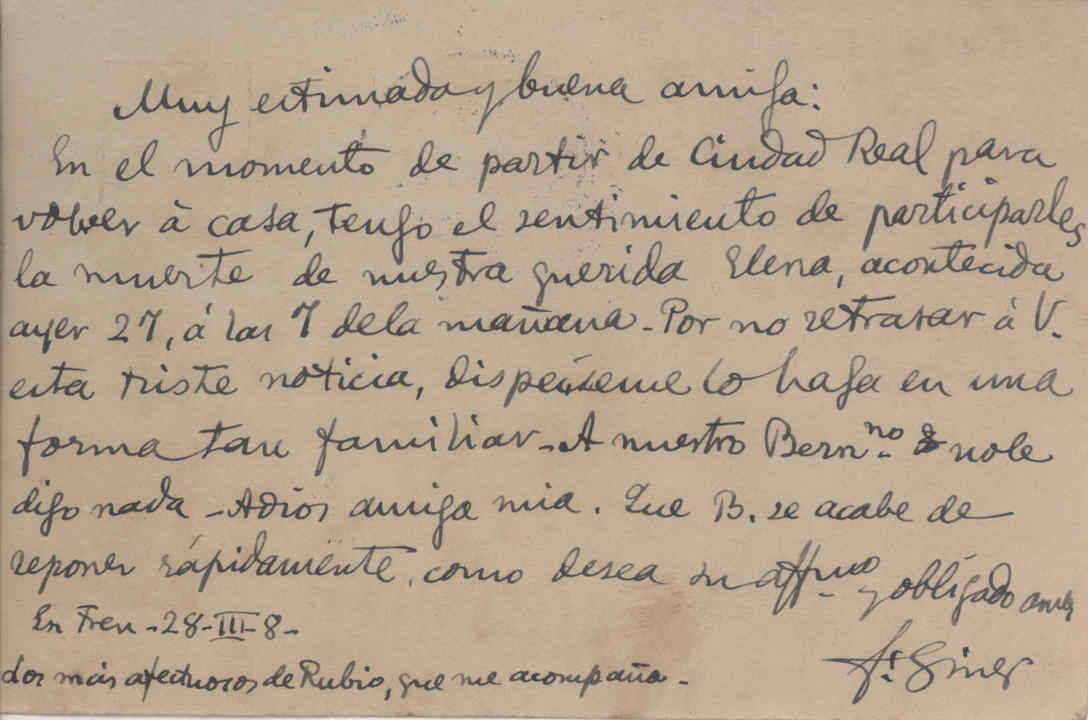 Muy estimada y buena amiga:
En el momento de partir de Ciudad Real para
volver à casa, tengo el sentimiento de participarles
la muerte de nuestra querida Elena, acontecida
ayer 27, á las 7 de la mañana - Por no retrasar à V.
esta triste noticia, dispénseme lo haga en una
forma tan familiar - A nuestro Bern.no no le
digo nada - Adios amiga mia. Que B. se acabe de
reponer rápidamente, como desea su affmo y obligado amigo
En Tren - 28-III-8-
F. Giner
Los más afectuosos de Rubio, que me acompaña -